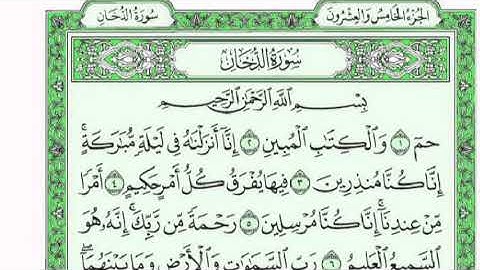 الجزء الخامس والعشرون
سورة الدخان
سُورَةُ الدُّخَانِ
بِسْمِ اللَّهِ الرَّحْمَٰنِ الرَّحِيمِ
حمٓ ١ وَالْكِتَابِ الْمُبِينِ ٢ إِنَّا أَنزَلْنَاهُ فِي لَيْلَةٍ مُّبَارَكَةٍ ۚ
إِنَّا كُنَّا مُنذِرِينَ ٣ فِيهَا يُفْرَقُ كُلُّ أَمْرٍ حَكِيمٍ ٤ أَمْرًا
مِّنْ عِندِنَا ۚ إِنَّا كُنَّا مُرْسِلِينَ ٥ رَحْمَةً مِّن رَّبِّكَ ۚ إِنَّهُ هُوَ
السَّمِيعُ الْعَلِيمُ ٦ رَبِّ السَّمَاوَاتِ وَالْأَرْضِ وَمَا بَيْنَهُمَا ۖ